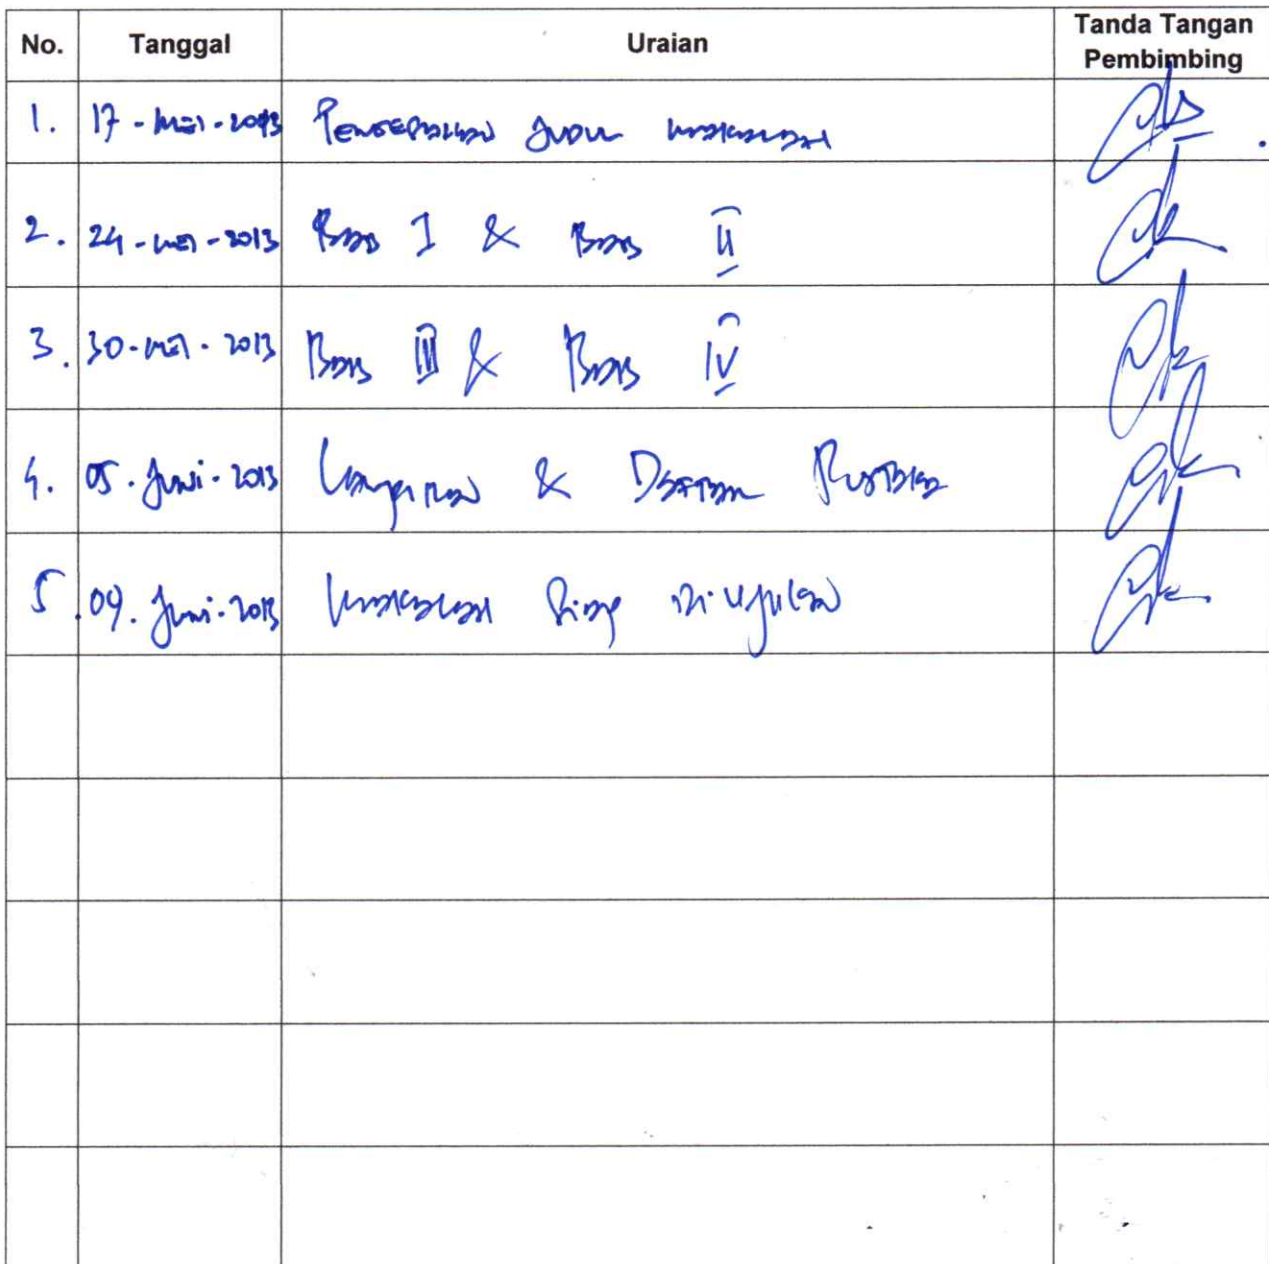 No. Tanggal Uraian Tanda Tangan Pembimbing
1. 17 - Mei - 2013 Pengesahan Judul Makalah
2. 24 - Mei - 2013 Bab I & Bab II
3. 30 - Mei - 2013 Bab III & Bab IV
4. 05 - Juni - 2013 Lampiran & Daftar Pustaka
5. 09 - Juni - 2013 Makalah Siap di ujikan